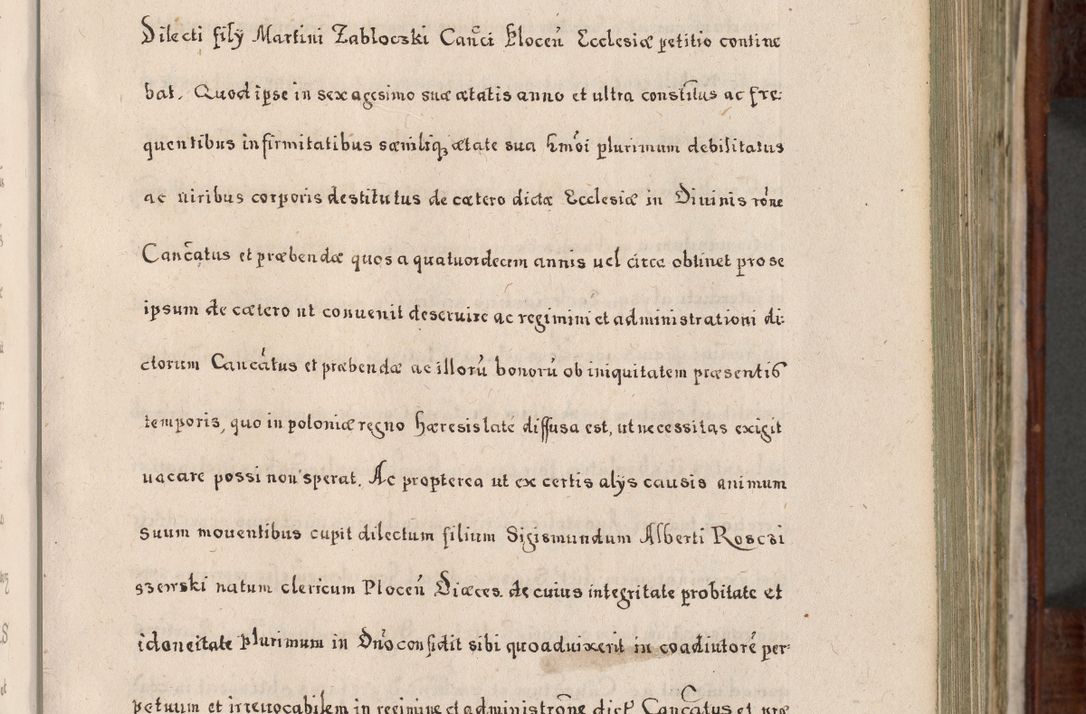 Dilecti filÿ Martini Zabloczki Canci Plocen̄ Ecclesiæ petitio contine
bat. Quod ipse in sexagesimo suæ ætatis anno et ultra constitus ac fre:
quentibus infirmitatibus sæniliqꝫ ætate sua hmoi plurimum debilitatus
ac uiribus corporis destitutus de cætero dictæ Ecclesiæ in Diuinis rōne
Canc̄atus et præbendæ quos a quatuordecim annis uel circa obtinet pro se
ipsum de cætero ut conuenit deseruire ac regimini et administrationi di:
ctorum Cancātus et præbendæ ac illorū bonorū ob iniquitatem præsentis
temporis, quo in poloniæ regno hæresis late diffusa est, ut necessitas exigit
uacare possi non sperat. Ac propterea ut ex certis alÿs causis animum
suum mouentibus cupit dilectum filium Sigismundum Alberti Rosczi
szewski natum clericum Plocen̄ Diæces. de cuius integritate probitate et
idoneitate plurimum in Dn̄o confidit sibi quoaduixerit in coadiutorē per:
petuum et irreuocabilem in regimine et administrōne dict Canc̄atus et præ